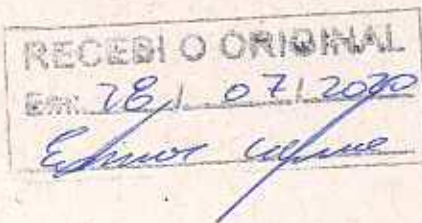 RECEBI O ORIGINAL
Em: 28 / 07 / 2020